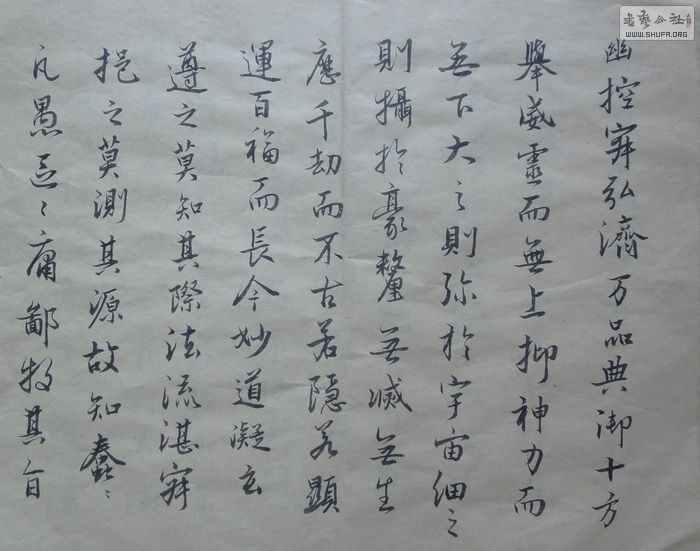 幽控寂弘濟万品典御十方
舉威靈而無上抑神力而
無下大之則弥於宇宙細之
則攝於豪釐無滅無生
歷千劫而不古若隱若顯
運百福而長今妙道凝玄
遵之莫知其際法流湛寂
挹之莫測其源故知蠢〻
凡愚區〻庸鄙投其旨
書藝公社
WWW.SHUFA.ORG